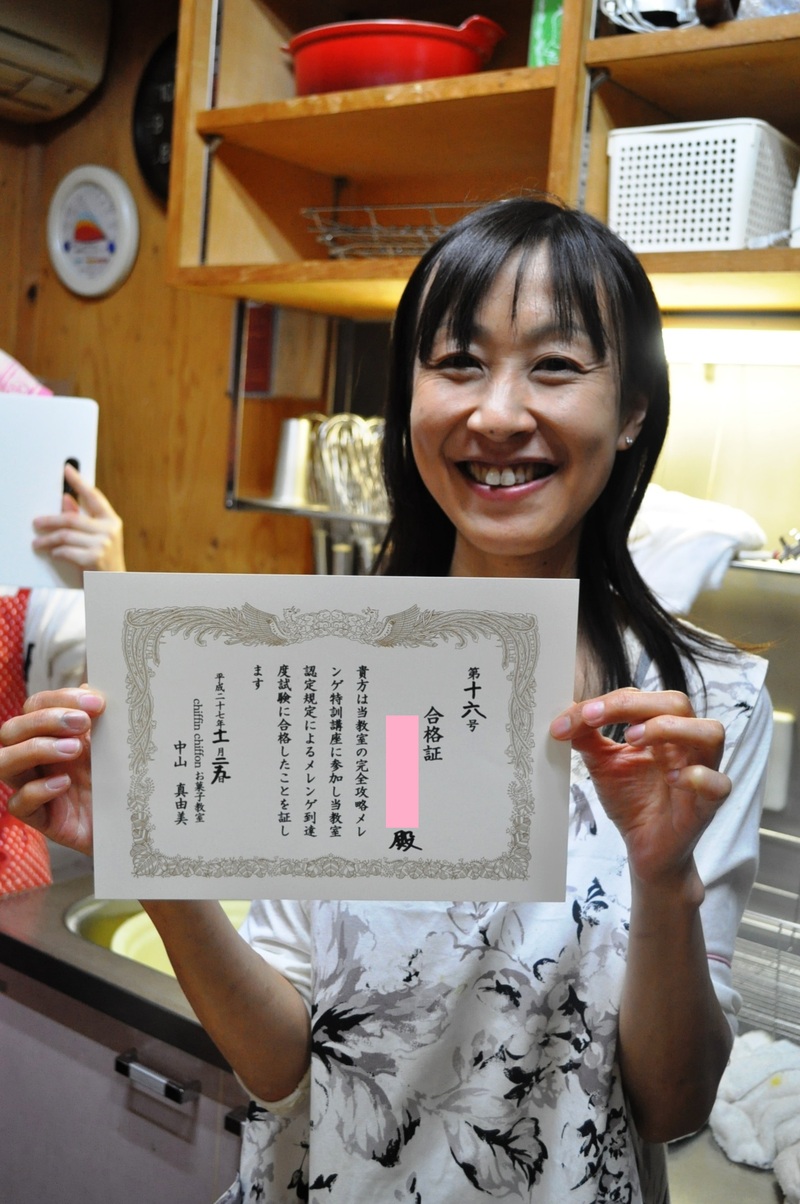 第十六号
合格証
殿
貴方は当教室の完全攻略メレ
ンゲ特訓講座に参加し当教室
認定規定によるメレンゲ到達
度試験に合格したことを証し
ます
平成二十七年
月
chiffin chiffon お菓子教室
中山 真由美